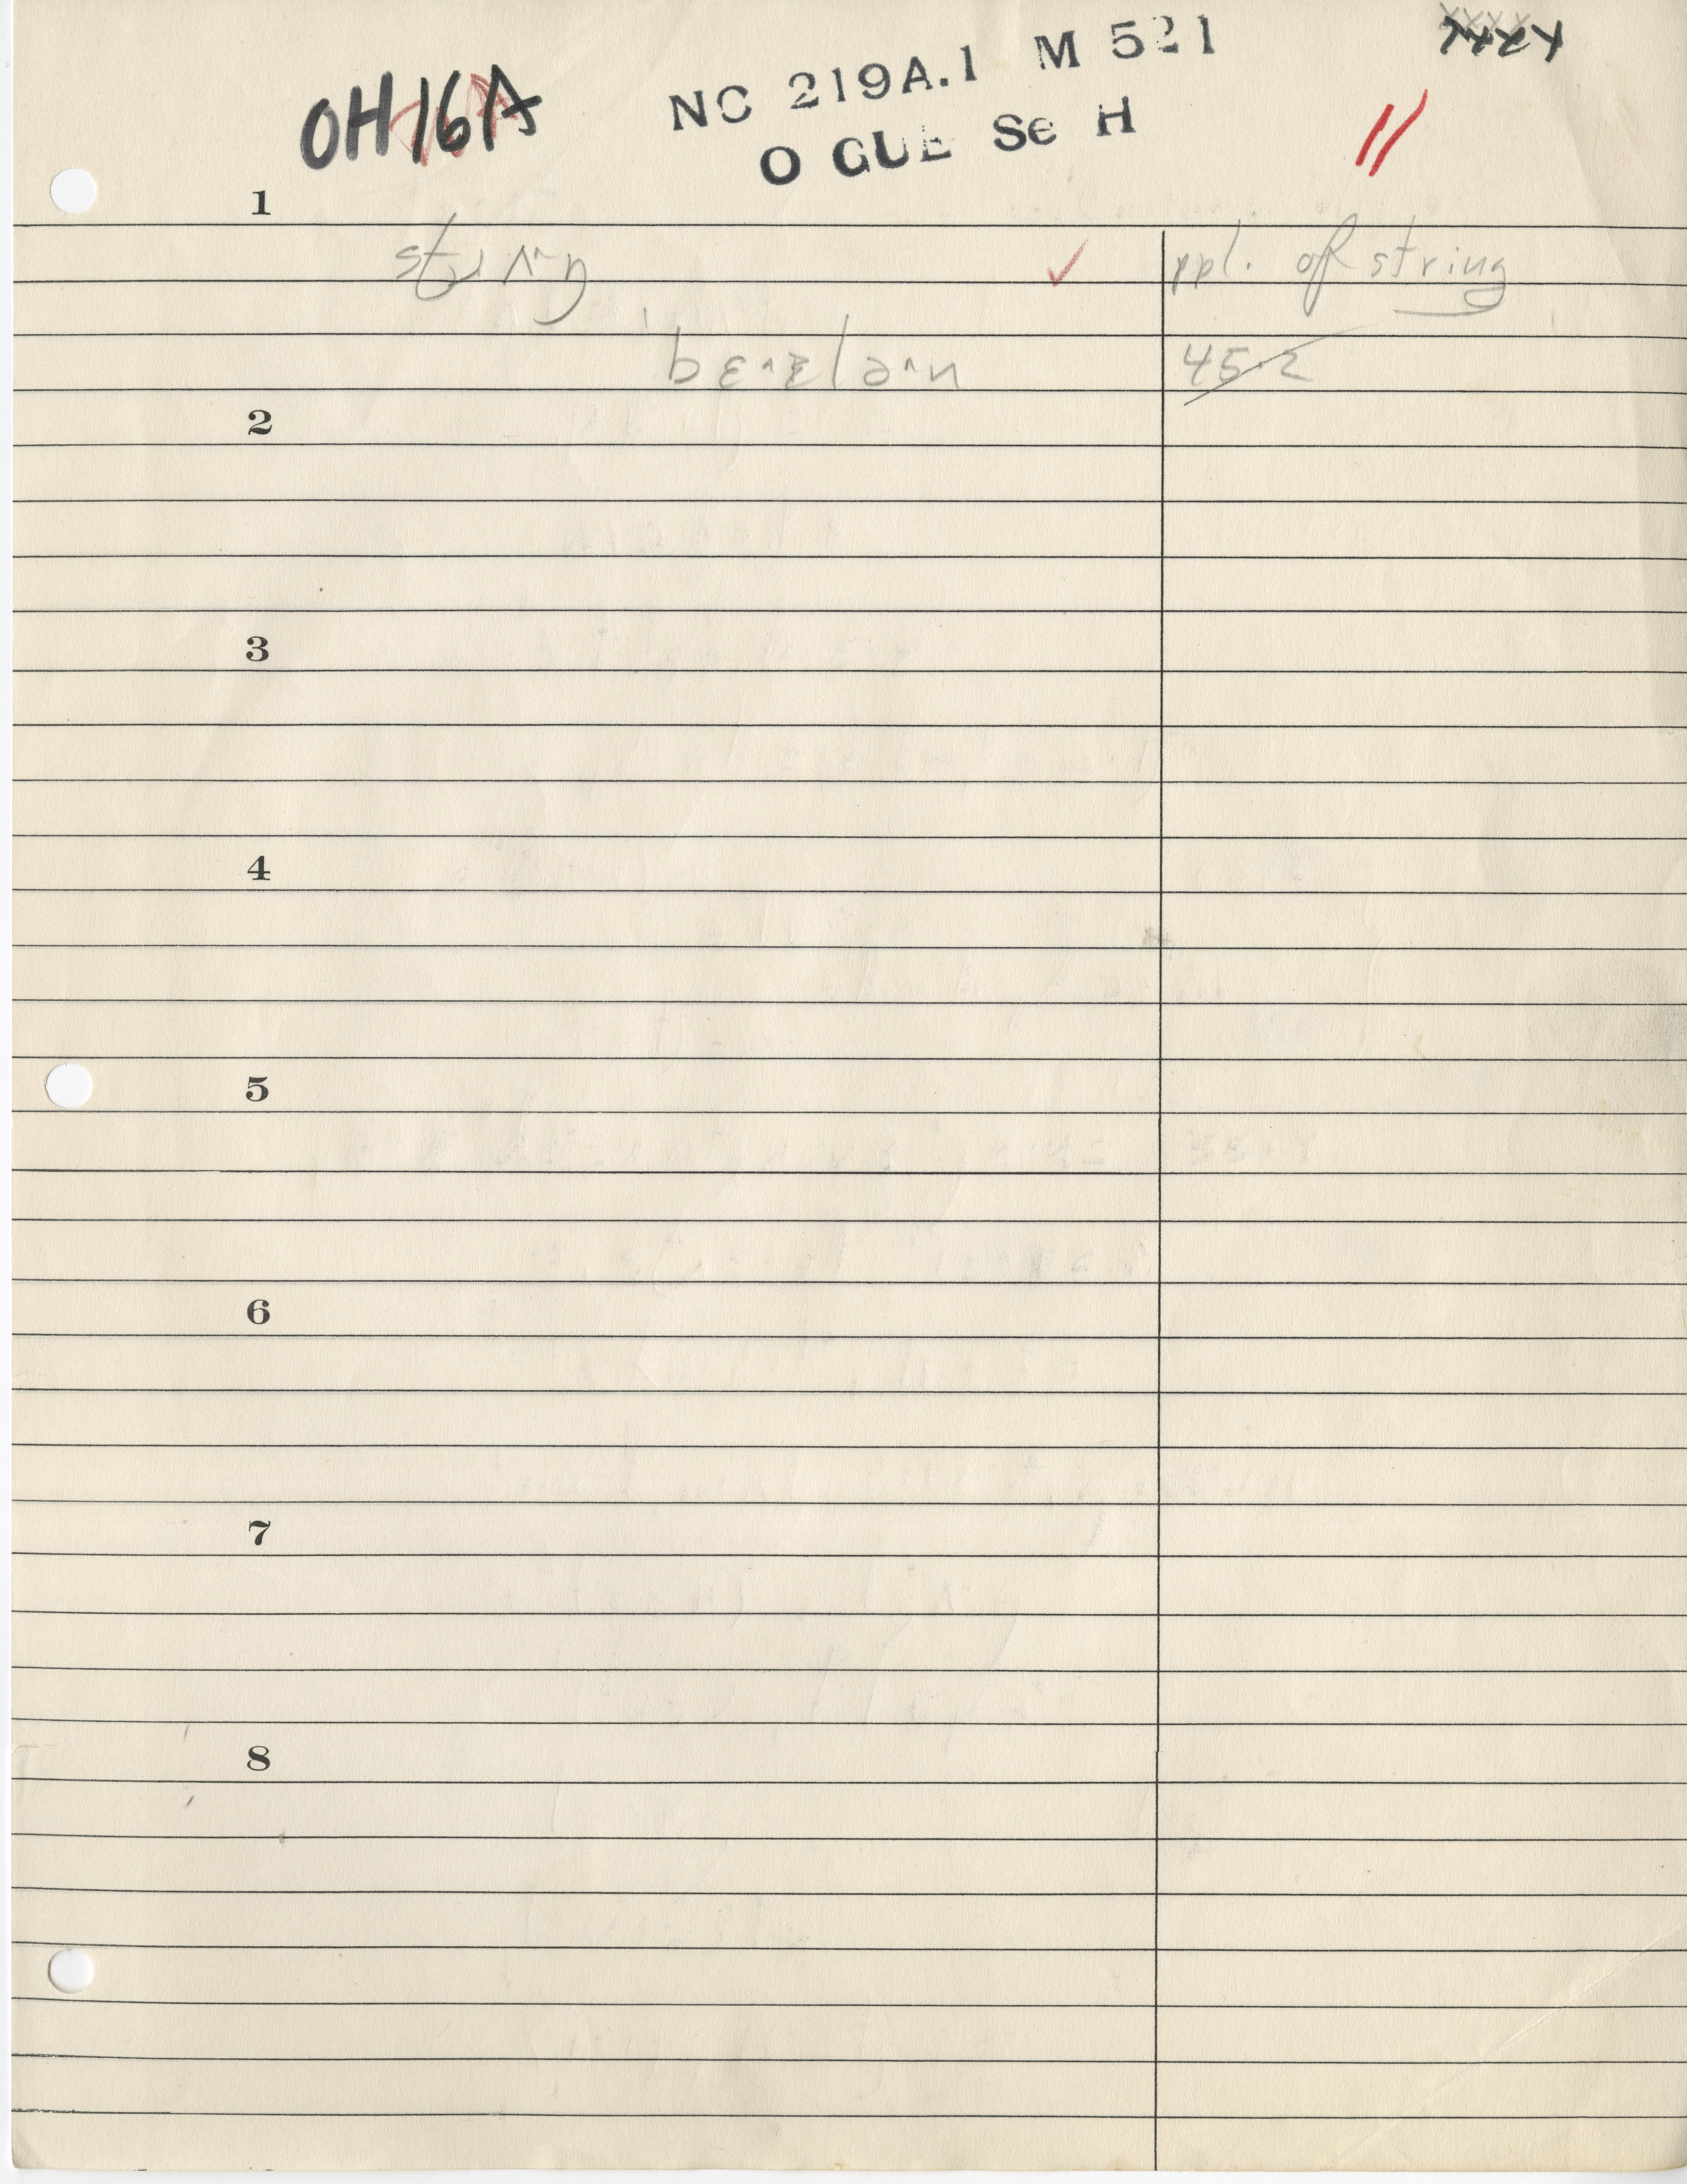 OH16A NC 219A.1 M 521
O GUE Se H
1
strʌ^ŋ ✓ ppl. of string
bɛ^ɪləˇn 45.2
2
3
4
5
6
7
8